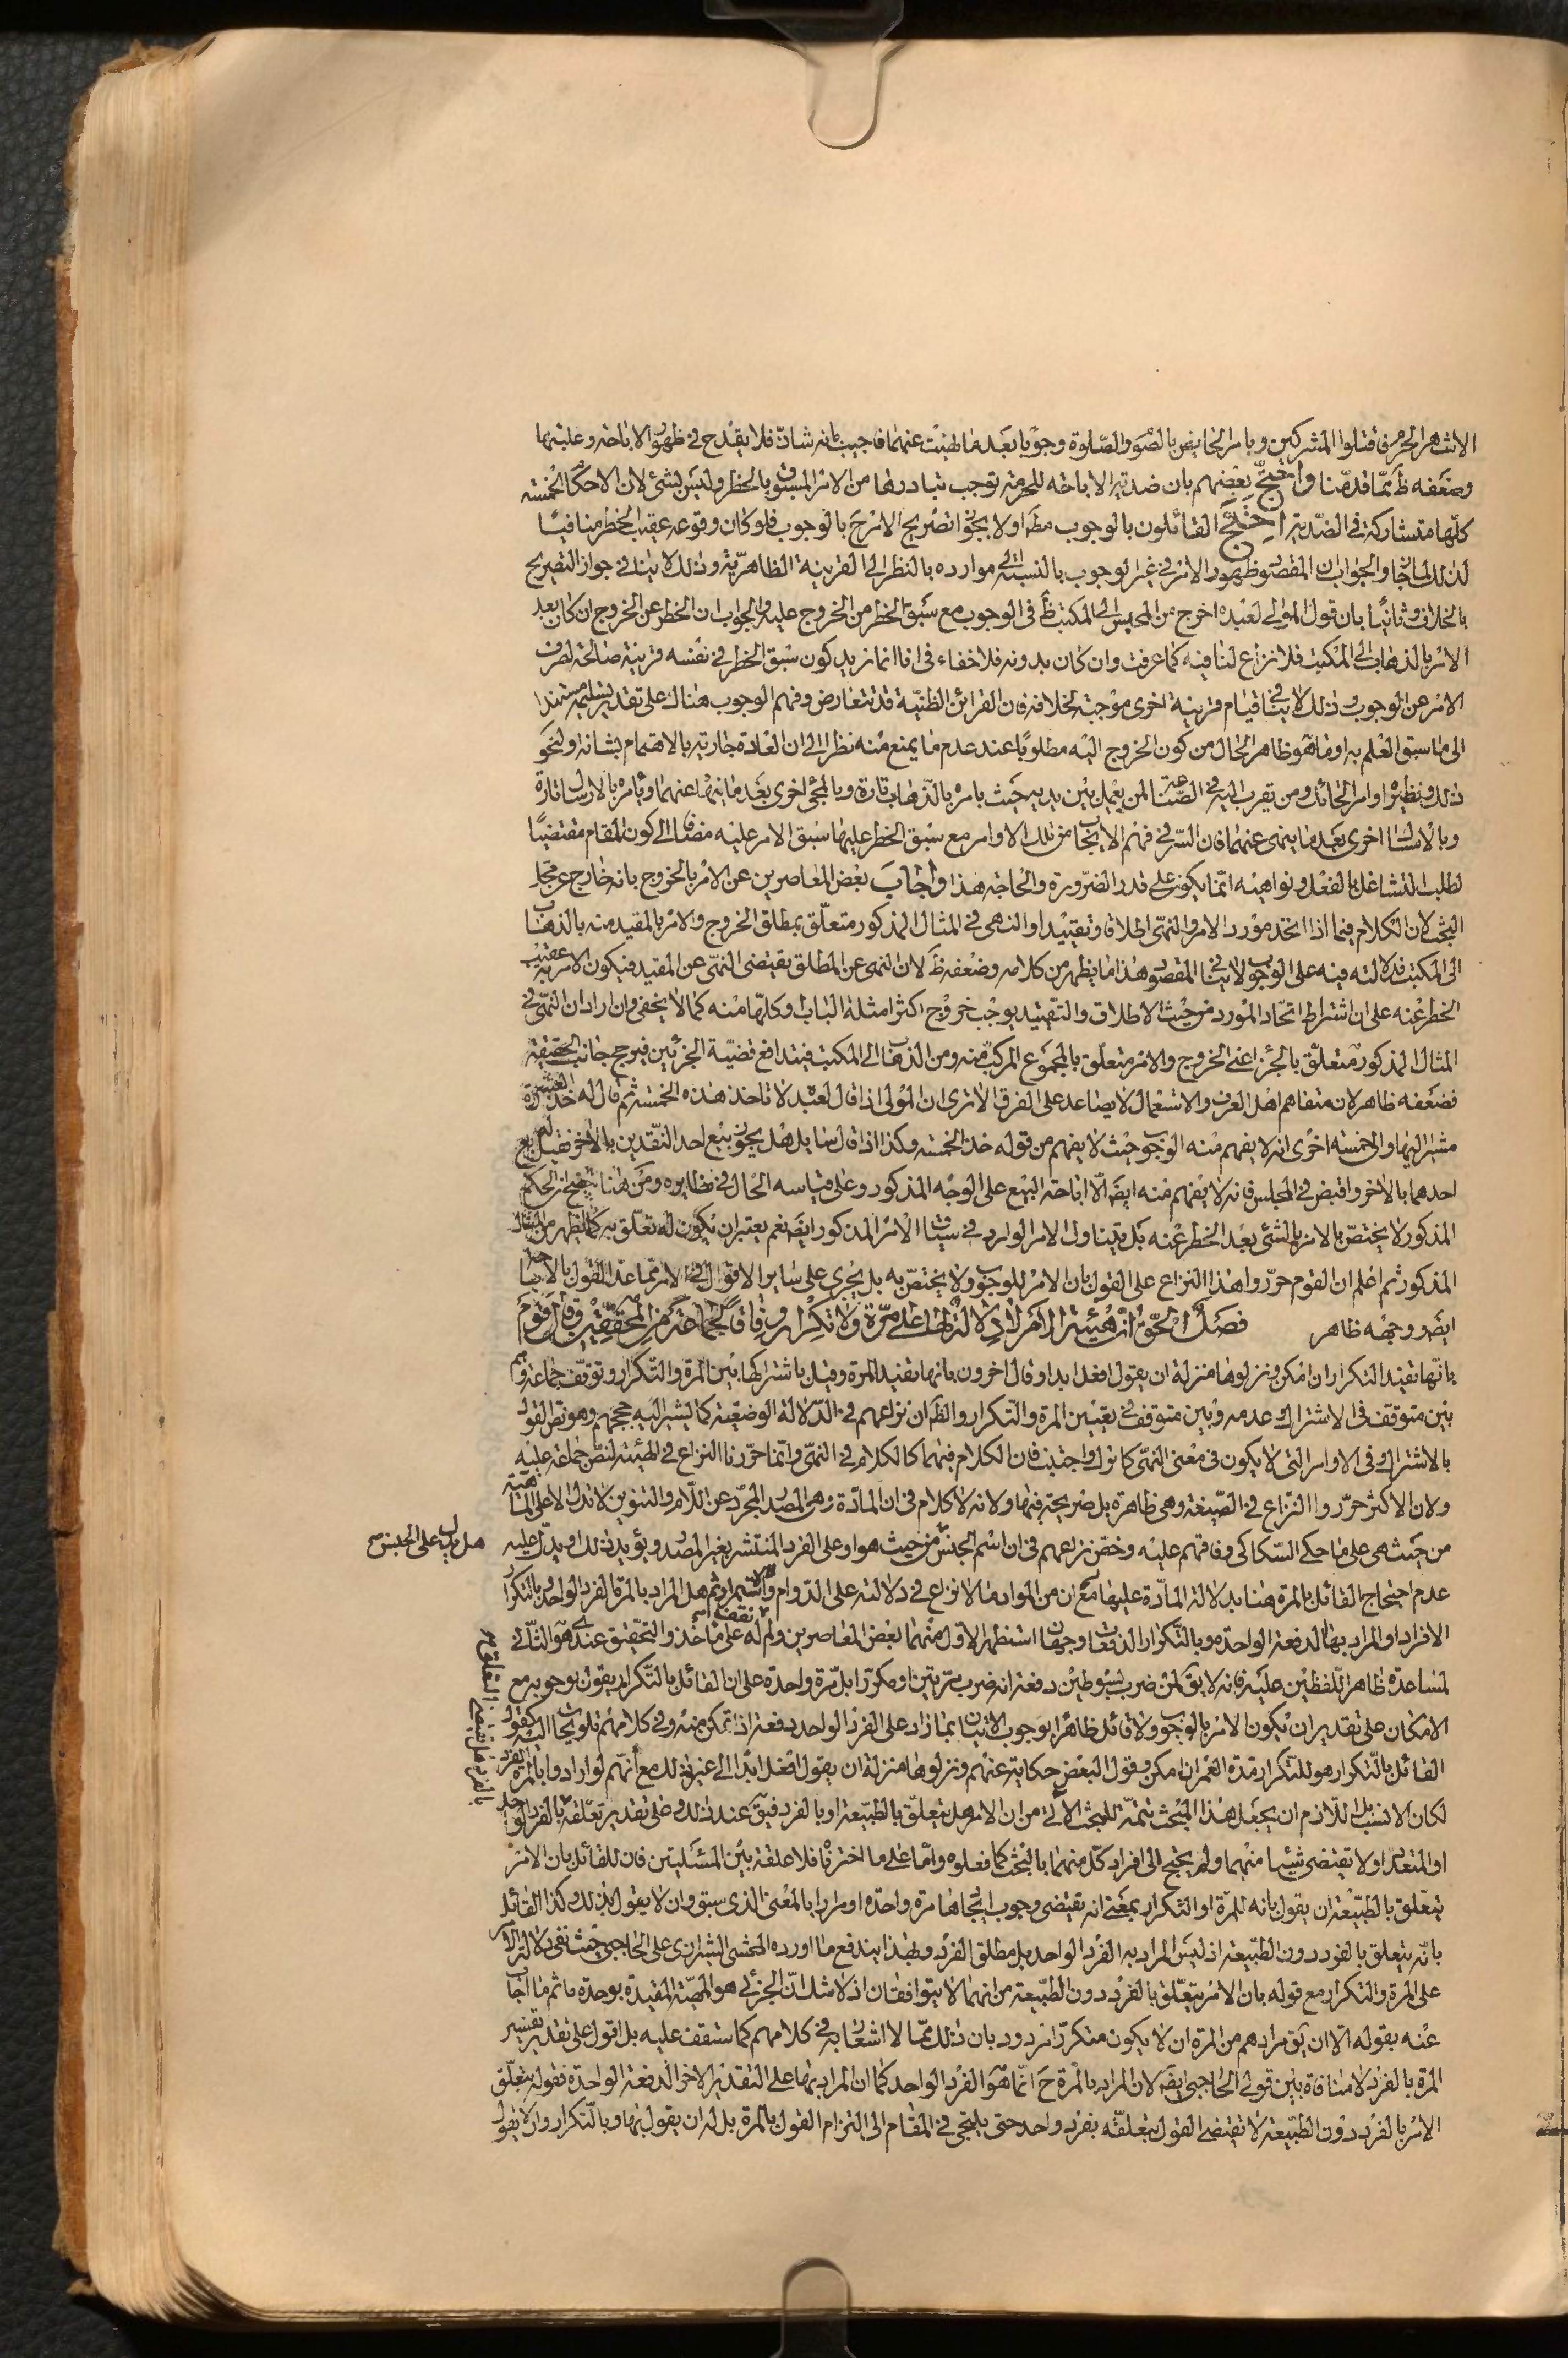 الاشهر الحرم فاقتلوا المشركين وبامر الحايض بالصوم والصلوة وجوبا بعد ما نهيت عنهما فاجيب بانه شاذ فلا يقدح في ظهور الاباحة وغلبتها
وضعفه ظ مما قدمنا واحتج بعضهم بان ضدية الاباحة للحرمة توجب تبادرها من الامر المسبوق بالحظر وليس بشئ لان الاحكام الخمسة
كلها متشاركة في الضدية احتج القائلون بالوجوب مط اولا بجواز تصريح الامر ح بالوجوب فلو كان وقوعه عقيب الحظر منافيا
لذلك لما جاز والجواب ان المقصود ظهور الامر في غير الوجوب بالنسبة الى موارده بالنظر الى القرينة الظاهرية وذلك لا ينافي جواز التصريح
بالخلاف وثانيا بان قول المولى لعبده اخرج من المحبس الى المكتب ظ في الوجوب مع سبق الحظر من الخروج عليه والجواب ان الحظر عن الخروج ان كان بعد
الامر بالذهاب الى المكتب فلا نزاع لنا فيه كما عرفت وان كان بدونه فلا خفاء في انا انما نريد كون سبق الحظر في نفسه قرينة صالحة لصرف
الامر عن الوجوب وذلك لا ينافي قيام قرينة اخرى موجبة لخلافه فان القرائن الظنية قد تتعارض وفهم الوجوب هناك على تقدير تسليمه مستند
الى ما سبق العلم به او ما هو ظاهر الحال من كون الخروج اليه مطلوبا عند عدم ما يمنع منه نظرا الى ان العادة جارية بالاهتمام بشانه ولنحو
ذلك ونظيره اوامر الحائك ومن يقرب اليه في الصناعة لمن يعمل بين يديه حيث يامره بالذهاب تارة وبالمجئ اخرى بعد ما ينهاه عنهما ويأمره بالارسال تارة
وبالامساك اخرى بعد ما ينهى عنهما فان السر في فهم الايجاب من تلك الاوامر مع سبق الحظر عليها سبق الامر عليه مضافا الى كون المقام مقتضيا
لطلب التشاغل بالفعل ونواهيه انما يكون على قدر الضرورة والحاجة هذا واجاب بعض المعاصرين عن الامر بالخروج بانه خارج عن محل
البحث لان الكلام فيما اذا اتحد مورد الامر والنهى اطلاقا وتقييدا والنهى في المثال المذكور متعلق بمطلق الخروج والامر بالمقيد منه بالذهاب
الى المكتب فدلالته فيه على الوجوب لا ينافي المقصود هذا ما يظهر من كلامه وضعفه ظ لان النهى عن المطلق يقتضى النهى عن المقيد فيكون الامر به عقيب
الحظر عنه على ان اشتراط اتحاد المورد من حيث الاطلاق والتقييد يوجب خروج اكثر امثلة الباب وكلها منه كما لا يخفى وان اراد ان النهى في
المثال المذكور متعلق بالجزء اعنى الخروج والامر متعلق بالمجموع المركب منه ومن الذهاب الى المكتب فيتدافع قضية الجزئين فيرجح جانب الحقيقة
فضعفه ظاهر لان متفاهم اهل العرف والاستعمال لا يصاعد على الفرق الا ترى ان المولى اذا قال لعبده لا تاخذ هذه الخمسة ثم قال له خذ العشرة
مشيرا اليها والى خمسة اخرى انه لا يفهم منه الوجوب حيث لا يفهم من قوله خذ الخمسة وكذا اذا قال سايل هل يجوز بيع احد النقدين بالاخر فقيل له بع
احدهما بالاخر واقبض في المجلس فانه لا يفهم منه ايض الا اباحة البيع على الوجه المذكور وعلى قياسه الحال في نظايره ومن هنا يتضح ان الحكم
المذكور لا يختص بالامر بالشئ بعد الحظر عنه بل يتناول الامر الوارد في سياق الامر المذكور ايض نعم يعتبر ان يكون له تعلق به كما يظهر من المثال
المذكور ثم اعلم ان القوم حرروا هذا النزاع على القول بان الامر للوجوب ولا يختص به بل يجرى على ساير الاقوال في الامر مما عدا القول بالاباحة
ايض ووجهه ظاهر فصل الحق ان هيئة الامر لا دلالة لها على مرة ولا تكرار وفاقا لجماعة من المحققين وقال قوم
بانها تفيد التكرار ان امكن ونزلوها منزلة ان يقول افعل ابدا وقال اخرون بانها تفيد المرة وقيل باشتراكها بين المرة والتكرار وتوقف جماعة وهم
بين متوقف في الاشتراك وعدمه وبين متوقف في تعيين المرة والتكرار والظ ان نزاعهم في الدلالة الوضعية كما يشير اليه حججهم وهو نص القول
بالاشتراك وفي الاوامر التى لا يكون في معنى النهى كاترك واجتنب فان الكلام فيهما كالكلام في النهى وانما حررنا النزاع في الهيئة لنص جماعة عليه
ولان الاكثر حرروا النزاع في الصيغة وهى ظاهرة بل صريحة فيها ولانه لا كلام في ان المادة وهى المصدر المجرد عن اللام والتنوين لا تدل الا على الماهية
من حيث هى على ما حكى السكاكى وفاقهم عليه وخص نزاعهم في ان اسم الجنس هل يدل على الجنس من حيث هو او على الفرد المنتشر بغير المصدر ويؤيد ذلك ويدل عليه
عدم احتجاج القائل بالمرة هنا بدلالة المادة عليها مع ان من المواد ما لا نزاع في دلالته على الدوام والاستمرار ثم هل المراد بالمرة الفرد الواحد وبالتكرار
الافراد او المراد بها الدفعة الواحدة وبالتكرار الدفعات وجهان استظهر الاول منهما بعض المعاصرين ولم نقف له على مأخذ والتحقيق عندى هو الثانى
لمساعدة ظاهر اللفظين عليه فانه لا يق لمن ضرب بسوطين دفعة انه ضرب مرتين او مكررا بل مرة واحدة على ان القائل بالتكرار يقول بوجوبه مع
الامكان على تقدير ان يكون الامر بالوجوب ولا قائل ظاهرا بوجوب الاتيان بما زاد على الفرد الواحد دفعة اذا تمكن منه وفي كلامهم تلويحات اليه كقول
القائل بالتكرار هو للتكرار مدة العمر ان امكن وقول البعض حكاية عنهم ونزلوها منزلة ان يقول افعل ابدا الى غير ذلك مع انهم لو ارادوا بالمرة الفرد
لكان الانسب بل اللازم ان يجعل هذا المبحث تتمة للبحث الآتى من ان الامر هل يتعلق بالطبيعة او بالفرد فيق عند ذلك وعلى تقدير تعلقه بالفرد هل يقتضى التعلق بالفرد الواحد
او المتعدد او لا يقتضى شيئا منهما ولم يحتج الى افراد كل منهما بالبحث كما فعلوه واما على ما اخترناه فلا علقة بين المسئلتين فان للقائل بان الامر
يتعلق بالطبيعة ان يقول بانه للمرة او التكرار بمعنى انه يقتضى وجوب ايجادها مرة واحدة او مرارا بالمعنى الذى سبق وان لا يقول بذلك وكذا القائل
بانه يتعلق بالفرد دون الطبيعة اذ ليس المراد به الفرد الواحد بل مطلق الفرد وبهذا يندفع ما اورده المحشى الشيرازى على الحاجبى حيث نفى دلالة الامر
على المرة والتكرار مع قوله بان الامر يتعلق بالفرد دون الطبيعة من انهما لا يتوافقان اذ لا شك ان الجزئى هو المهية المقيدة بوحدة ما ثم ما اجاب
عنه بقوله الا ان يق مرادهم من المرة ان لا يكون متكررا مردود بان ذلك مما لا اشعار به في كلامهم كما ستقف عليه بل اقول على تقدير تفسير
المرة بالفرد لا منافاة بين قولى الحاجبى ايض لان المراد بالمرة ح انما هو الفرد الواحد كما ان المراد بها على التقدير الاخر الدفعة الواحدة فقوله بتعلق
الامر بالفرد دون الطبيعة لا تقتضى القول بتعلقه بفرد واحد حتى يلتجى في المقام الى التزام القول بالمرة بل له ان يقول بها وبالتكرار وان لا يقول